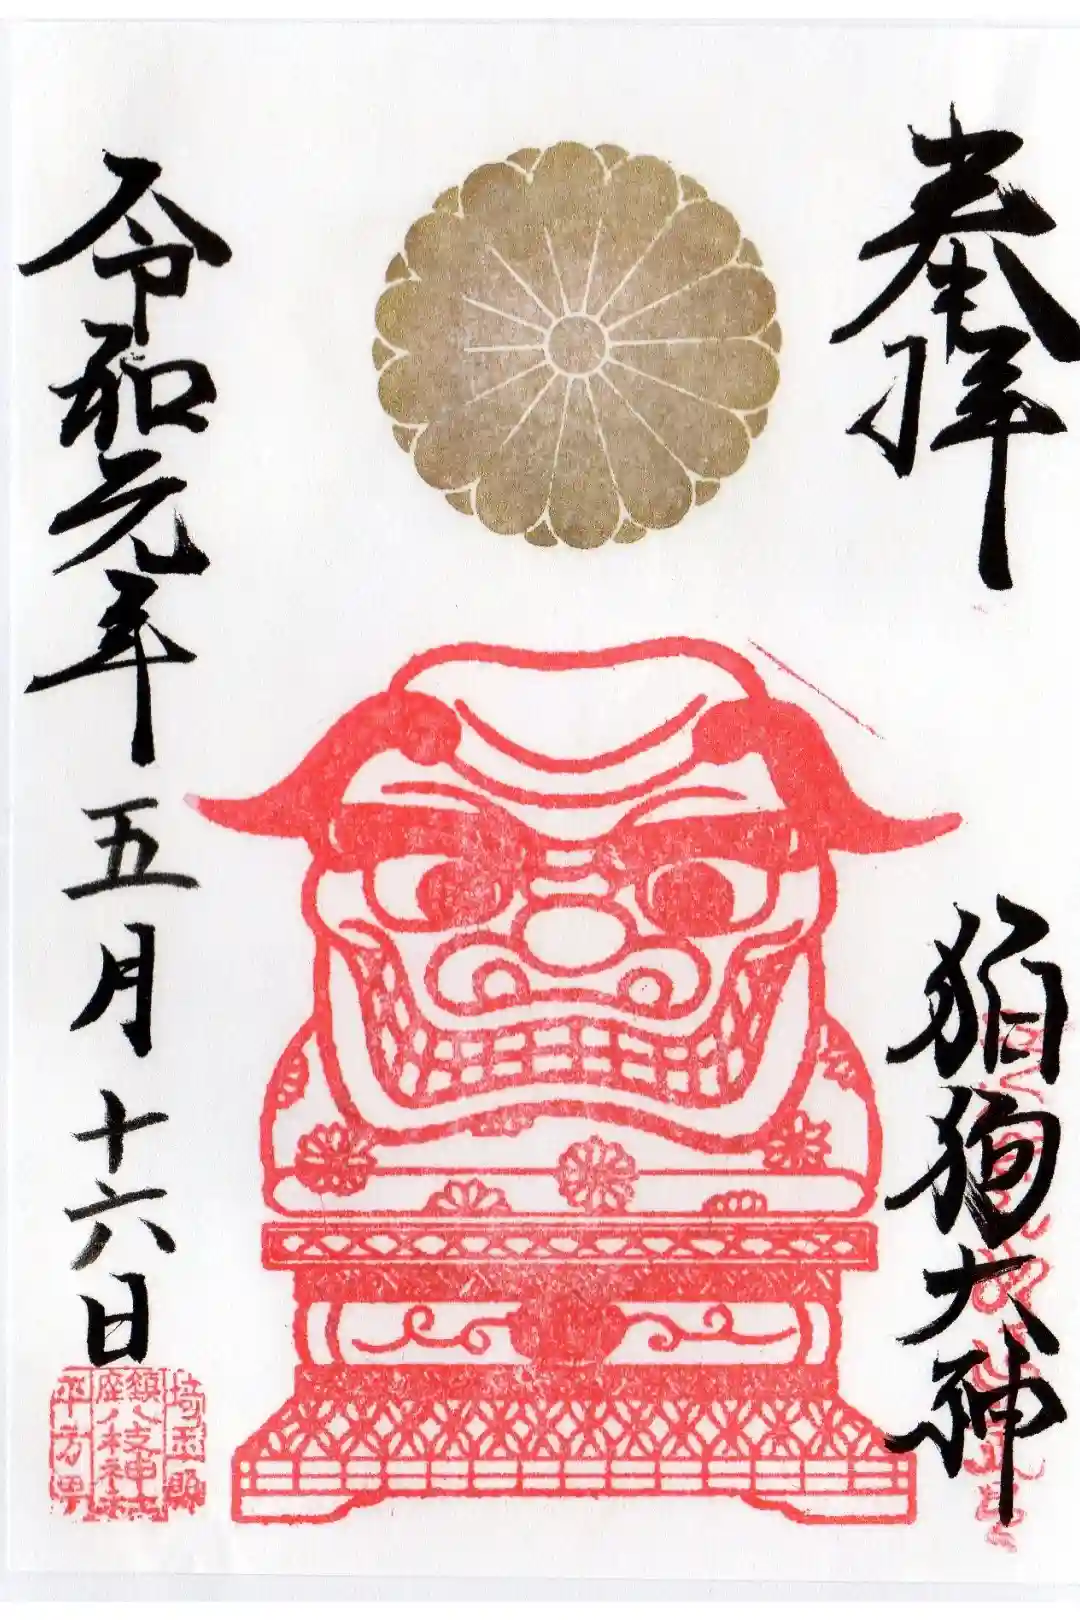 奉拝
狛狗大神
令和元年五月十六日
埼玉縣
鎮八枝神社
平方里